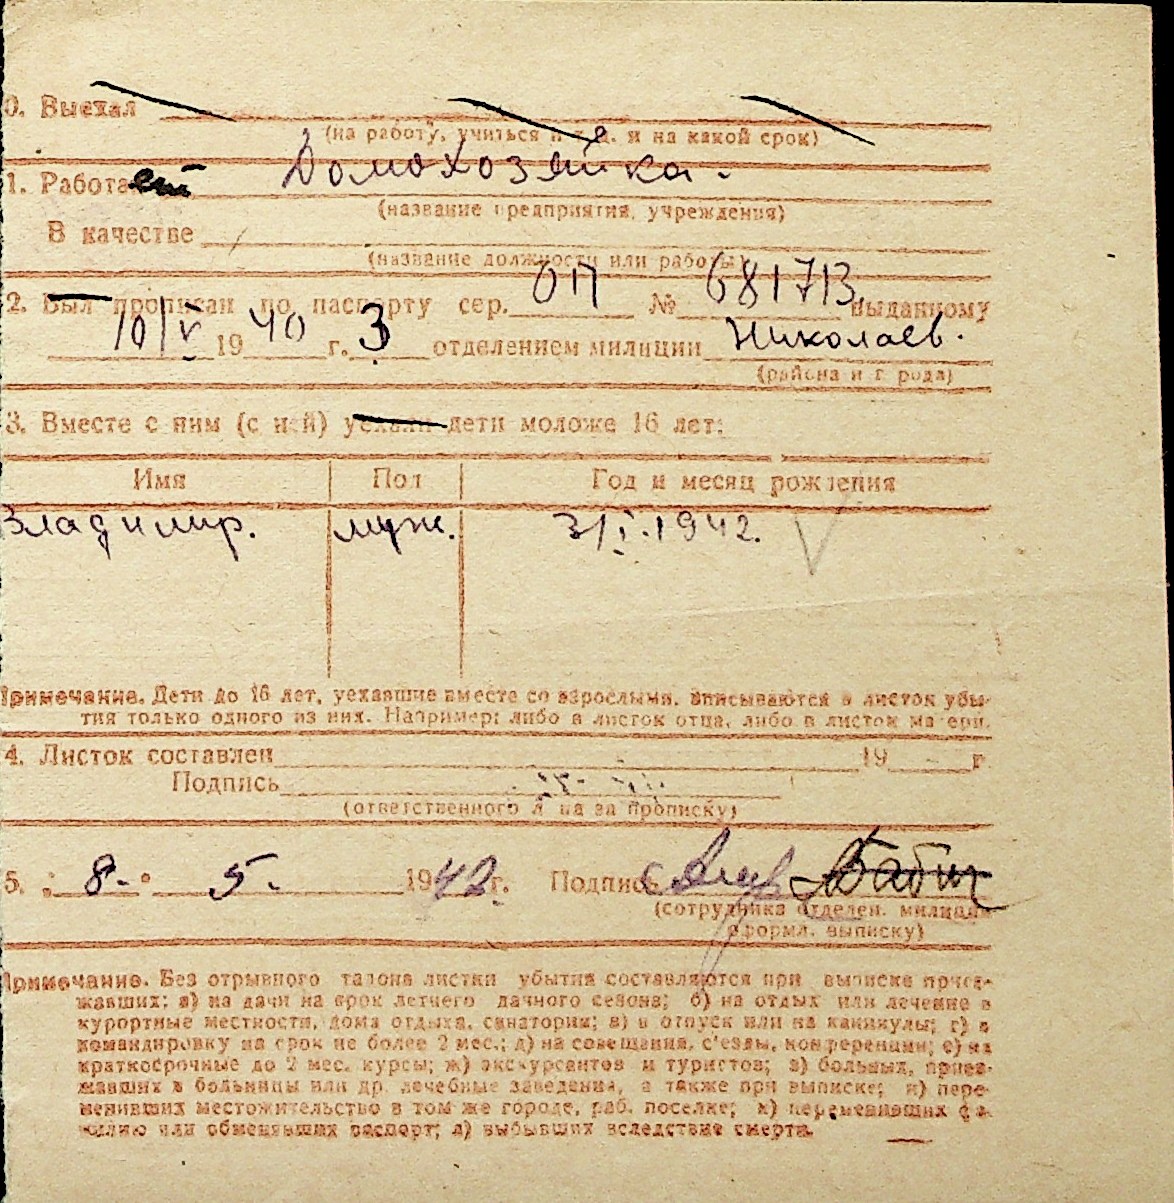 0. Выехал
(на работу, учиться и т. д. и на какой срок)
1. Работает Домохозяйка.
(название предприятия, учреждения)
В качестве
(название должности или работы)
2. Был прописан по паспорту сер. ОП № 681713, выданному
10/V 1940 г. 3 отделением милиции Николаев.
(района и города)
3. Вместе с ним (с ней) уехали дети моложе 16 лет:
Имя Пол Год и месяц рождения
Владимир. муж. 3/I.1942.
Примечание. Дети до 16 лет, уехавшие вместе со взрослыми, вписываются в листок убы-
тия только одного из них. Например: либо в листок отца, либо в листок матери.
4. Листок составлен 19 г.
Подпись
(ответственного лица за прописку)
5. „ 8. " 5. 1942 г. Подпись
(сотрудника отделен. милиции
оформл. выписку)
Примечание. Без отрывного талона листки убытия составляются при выписке приез-
жавших: а) на дачи на срок летнего дачного сезона; б) на отдых или лечение в
курортные местности, дома отдыха, санатории; в) в отпуск или на каникулы; г) в
командировку на срок не более 2 мес.; д) на совещания, с'езды, конференции; е) на
краткосрочные до 2 мес. курсы; ж) экскурсантов и туристов; з) больных, приез-
жавших в больницы или др. лечебные заведения, а также при выписке; и) пере-
менивших местожительство в том же городе, раб. поселке; к) переменивших фа-
милию или обменявших паспорт; л) выбывших вследствие смерти.